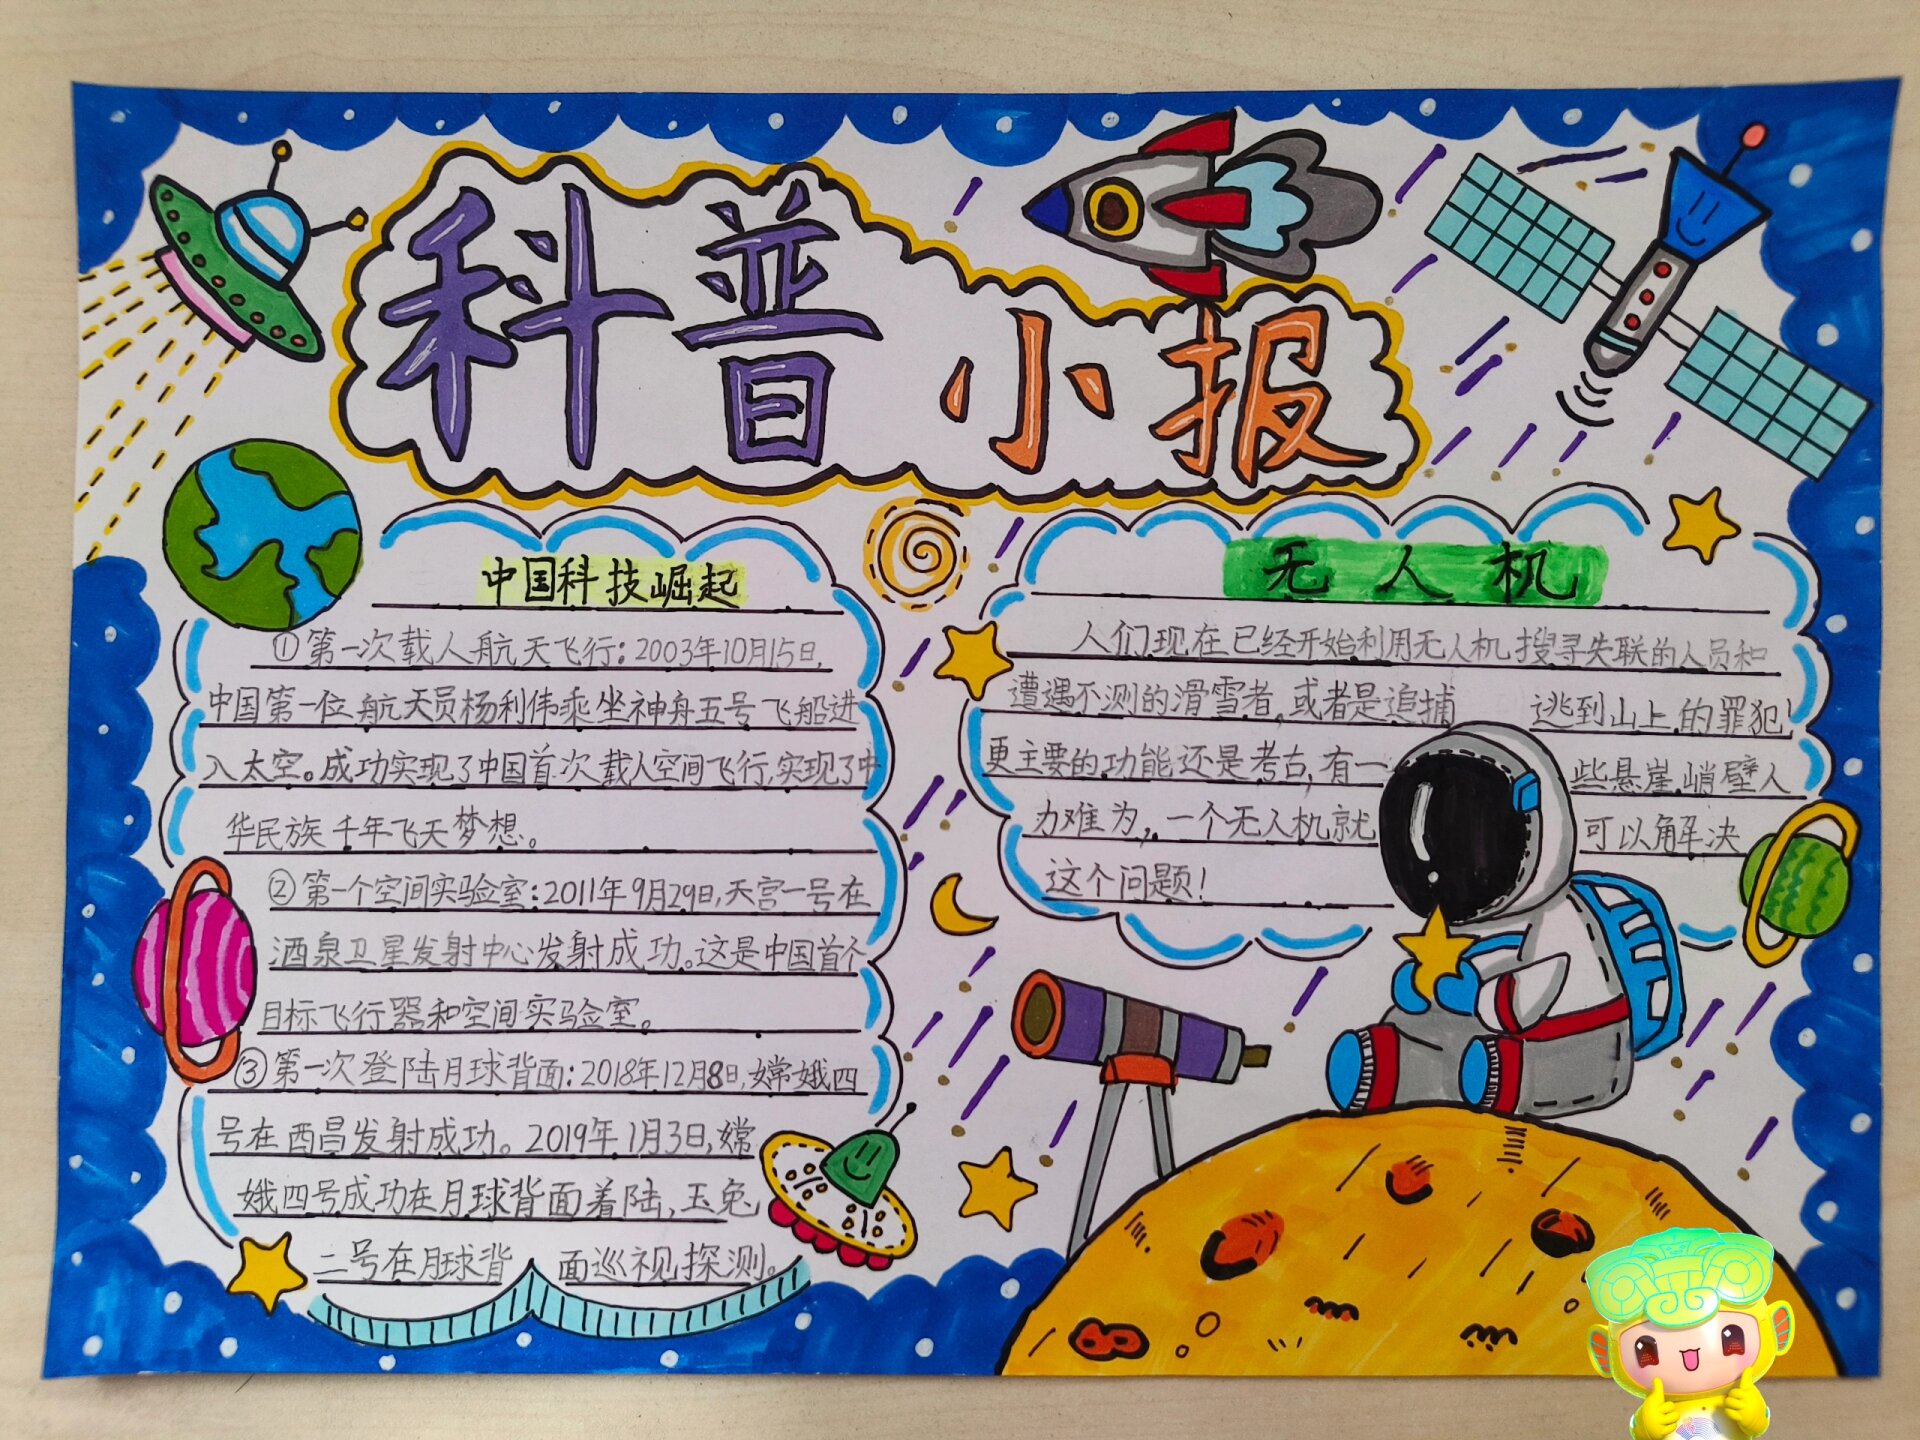 科普小报
中国科技崛起
①第一次载人航天飞行：2003年10月15日，
中国第一位航天员杨利伟乘坐神舟五号飞船进
入太空。成功实现了中国首次载人空间飞行，实现了中
华民族千年飞天梦想。
②第一个空间实验室：2011年9月29日，天宫一号在
酒泉卫星发射中心发射成功。这是中国首个
目标飞行器和空间实验室。
③第一次登陆月球背面：2018年12月8日，嫦娥四
号在西昌发射成功。2019年1月3日，嫦
娥四号成功在月球背面着陆，玉兔
二号在月球背 面巡视探测。
无人机
人们现在已经开始利用无人机搜寻失联的人员和
遭遇不测的滑雪者，或者是追捕 逃到山上的罪犯！
更主要的功能还是考古，有一 些悬崖峭壁人
力难为，一个无人机就 可以解决
这个问题！